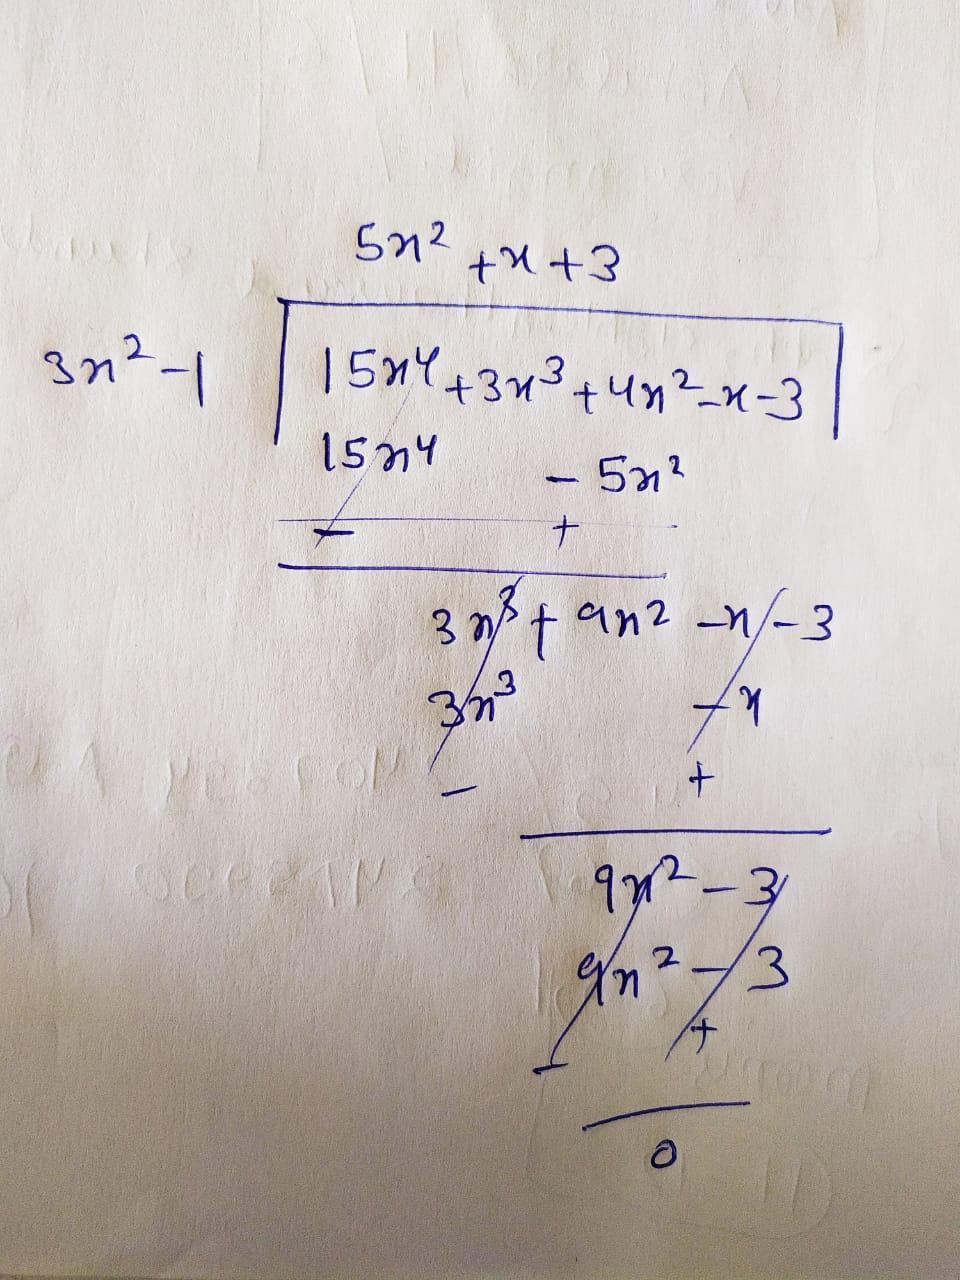 5x² + x + 3
3x² - 1 15x⁴ + 3x³ + 4x² - x - 3
15x⁴ - 5x²
- +
3x³ + 9x² - x - 3
3x³ - x
- +
9x² - 3
9x² - 3
- +
0